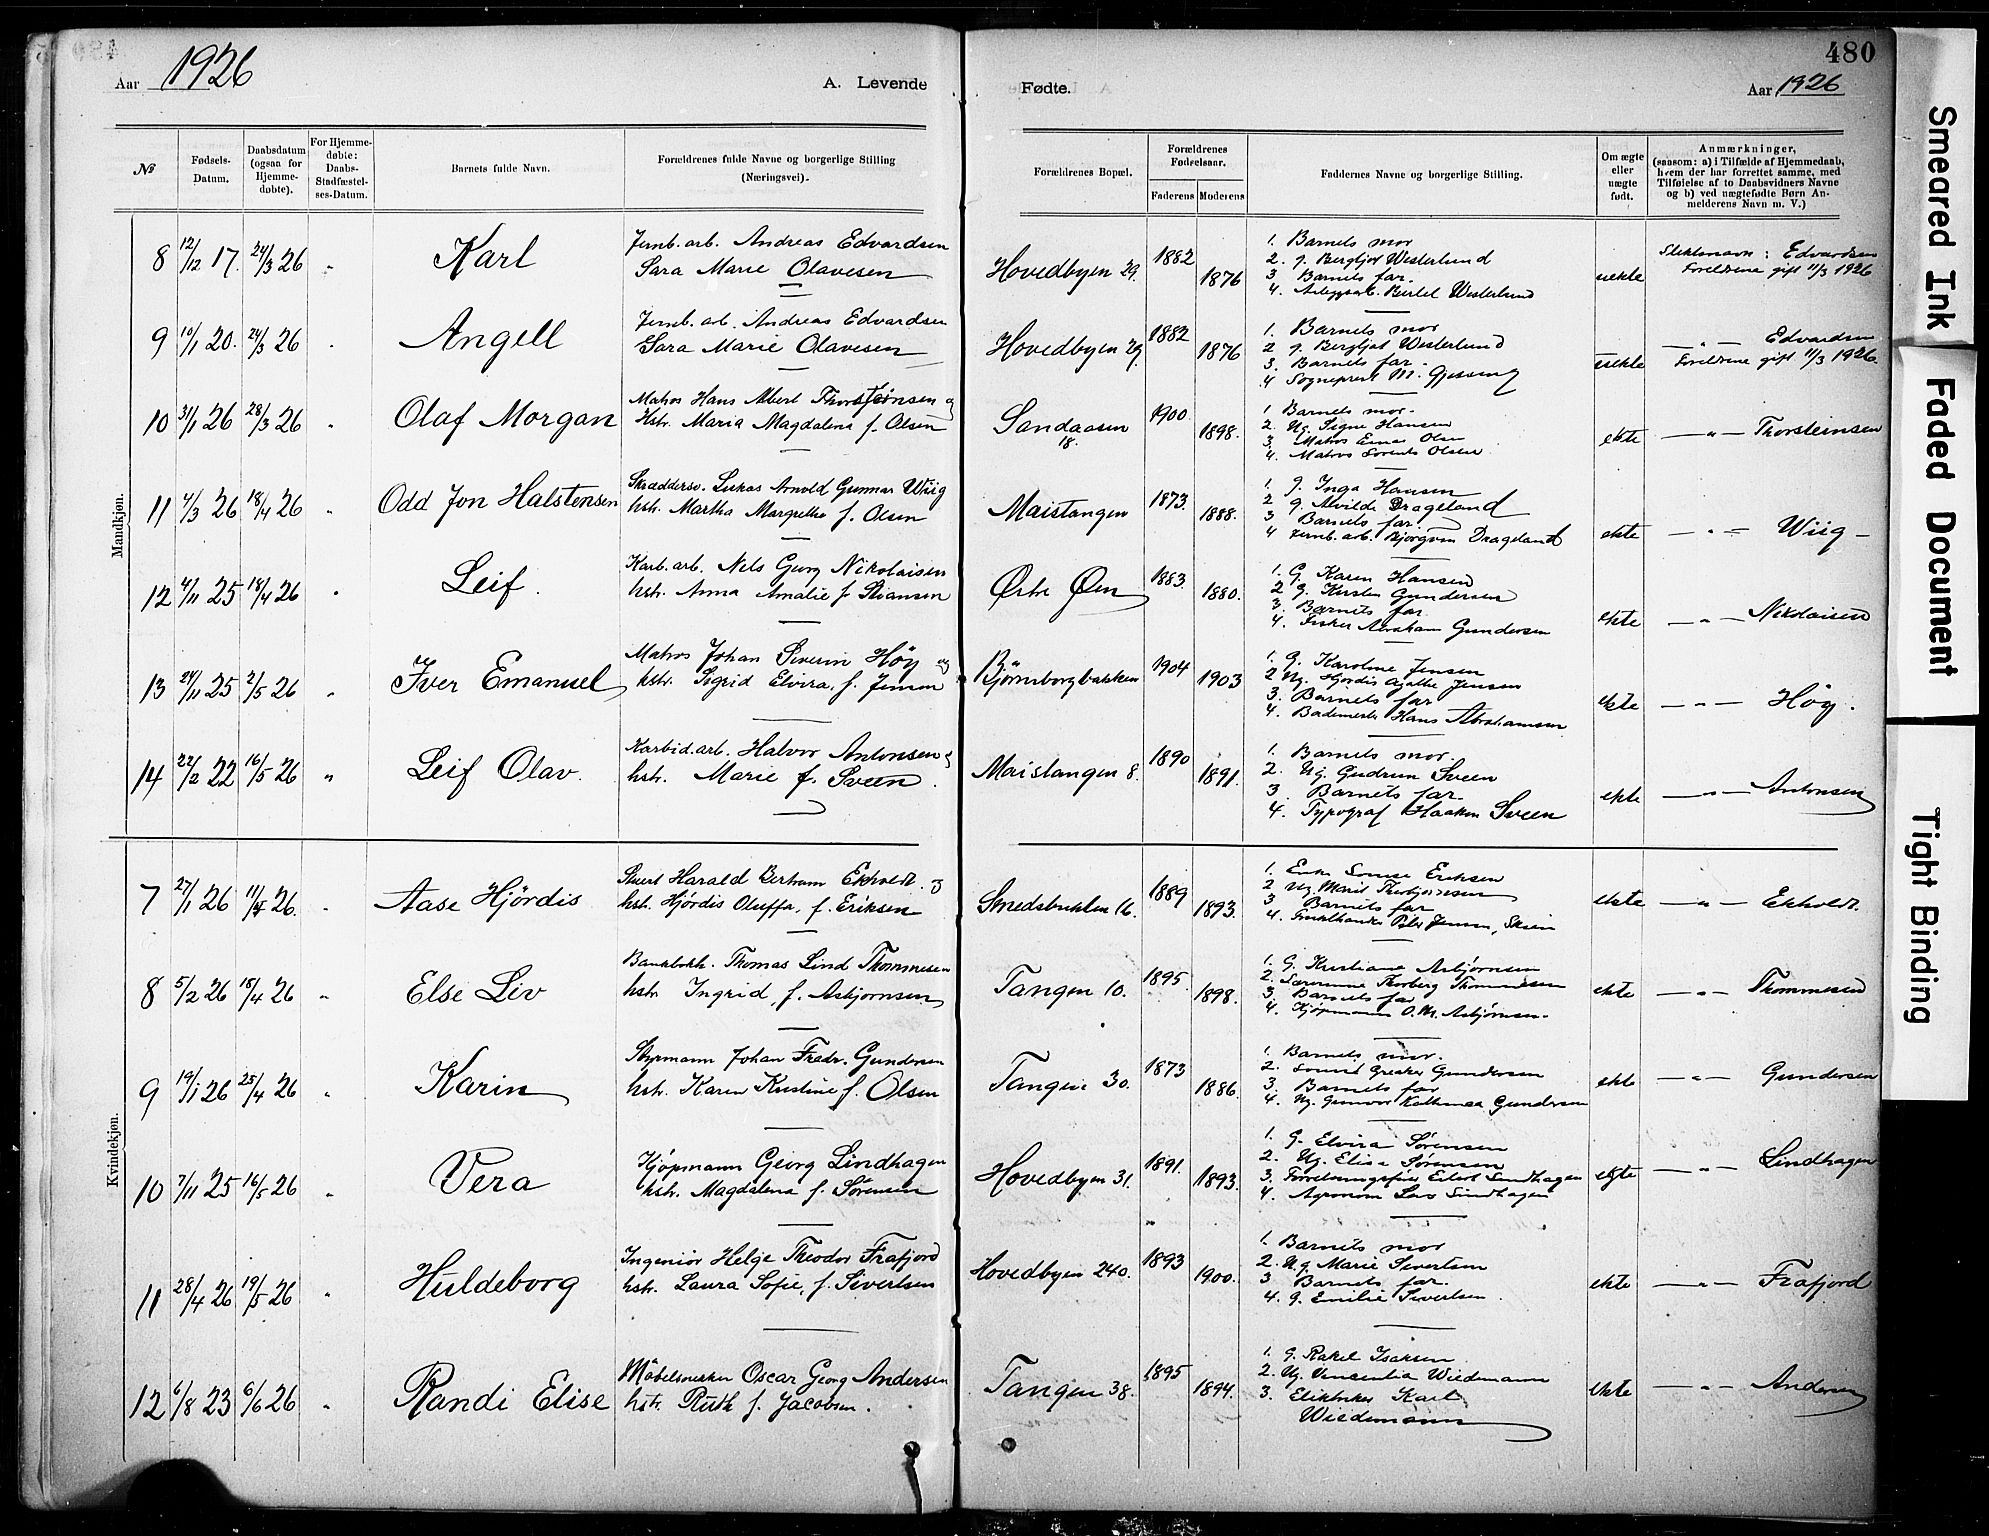 480
Aar 1926
A. Levende
Fødte.
Aar 1926
№
Fødsels-Datum.
Daabsdatum (ogsaa for Hjemme-døbte).
For Hjemme-døbte: Daabs-Stadfæstel-ses-Datum.
Barnets fulde Navn.
Forældrenes fulde Navne og borgerlige Stilling (Næringsvei).
Forældrenes Bopæl.
Forældrenes Fødselsaar.
Faderens
Moderens
Faddernes Navne og borgerlige Stilling.
Om ægte eller uægte født.
Anmærkninger,
(saasom: a) i Tilfælde af Hjemmedaab,
hvem der har forrettet samme, med
Tilføielse af to Daabsvidners Navne
og b) ved uægtefødte Børn An-
melderens Navn m. V.)
Mandkjøn.
8 12/12 17. 24/3 26 " Karl
Jernb. arb. Andreas Edvardsen
Sara Marie Olavesen
Hovedbyen 29. 1882 1876
1. Barnets mor
2. g. Bergljot Westerlund
3. Barnets far
4. Bertel Westerlund
uekte
Slektsnavn: Edvardsen
Foreldrene gift 11/3 1926
9 10/1 20. 24/3 26 " Angell
Jernb. arb. Andreas Edvardsen
Sara Marie Olavesen
Hovedbyen 29. 1882 1876
1. Barnets mor
2 g. Bergljot Westerlund
3. Barnets far
4 Sogneprest M. Gjessing
uekte
— " — Edvardsen
Foreldrene gift 11/3 1926.
10 31/1 26 28/3 26 " Olaf Morgan
Matros Hans Albert Thorsteinsen og
Hstr. Maria Magdalena f. Olsen
Sandaasen 18. 1900 1898.
1. Barnets mor.
2. Ug. Signe Hansen
3. Matros Einar Olsen
4. Matros Lorents Olsen
ekte — " — Thorsteinsen
11 4/3 26 18/4 26 " Odd Jon Halstensen
Skræddersv. Lukas Arnold Gunnar Wiig
hstr. Martha Margrethe f. Olsen
Maistangen 1873. 1888.
1. g. Inga Hansen
2 g. Alvilde Drageland
3 Barnets far
4 Jernb. arb. Bjørgvin Drageland
ekte — " — Wiig —
12 4/11 25 18/4 26 " Leif.
Karb. arb. Nels Georg Nikolaisen
hstr. Anna Amalie f. Stiansen
Østre Øen 1883. 1880.
1. G. Karen Hansen
2 G. Kirsten Gundersen
3. Barnets far
4. Fisker Abraham Gundersen
ekte — " — Nikolaisen
13 24/11 25 2/5 26 " Iver Emanuel
Matros Johan Severin Høy og
hstr. Sigrid Elvira, f. Jensen
Bjørnsborgbakken 1904 1903
1. G. Karoline Jensen
2 Ug. Hjördis Agathe Jensen
3. Barnets far
4. Bademester Hans Abrahamsen
ekte — " — Høy.
14 22/2 22 16/5 26 " Leif Olav.
Karbid.arb. Halvor Antonsen og
hstr. Marie f. Sveen.
Maistangen 8. 1890 1891.
1. Barnets mor.
2. Ug. Gudrun Sveen
3. Barnets far.
4. Typograf Haakon Sveen
ekte — " — Antonsen
Kvindekjøn.
7 27/1 26 11/4 26. " Aase Hjördis
Stuert Harald Bertram Ekholdt og
hst. Hjördis Oluffa, f. Eriksen
Smedsbukten 16. 1889 1893.
1. Enke Eriksen
2 Ug. Marit Thorbjørnsen
3. Barnets far
4. Jensen, Skien
ekte — " — Ekholdt.
8 5/2 26 18/4 26 " Else Liv
Bankbokh. Thomas Lind Thommesen
hstr. Ingrid, f. Asbjørnsen
Tangen 10. 1895. 1898.
1. G. Kristiane Asbjørnsen
2. Thorberg Thommesen
3. Barnets far
4. Kjøpmann O. M. Asbjørnsen.
ekte — " — Thommesen
9 19/1 26 25/4 26 " Karin
Styrmann Johan Fredr. Gundersen
hstr. Karen Kristine f. Olsen
Tangen 30. 1873 1886.
1. Barnets mor.
2. Gundersen
3. Barnets far
4. Ug. Gunvor Kathinca Gundersen
ekte — " — Gundersen
10 7/11 25 16/5 26 " Vera
Kjöpmann Georg Lindhagen
hstr. Magdalena f. Sørensen
Hovedbyen 31. 1891. 1893.
1. G. Elvira Sørensen
2. Ug. Elise Sørensen
3. Forretningsfører Eilert Lindhagen
4. Agronom Leo Lindhagen
egte — " — Lindhagen
11 28/4 26 19/5 26 " Huldeborg
Ingeniör Helge Theodor Frafjord
hstr. Laura Sofie, f. Sivertsen
Hovedbyen 240. 1893 1900.
1. Barnets mor
2. Ug. Marie Sivertsen
3 Barnets far.
4. g. Emilie Sivertsen.
ekte — " — Frafjord
12 6/8 23 6/6 26 " Randi Elise
Möbelsnekker Oscar Georg Andersen
hstr. Ruth f. Jacobsen.
Tangen 38. 1895 1894.
1. G. Rakel Isaksen
2. Ug. Vincentia Wiedemann
3. Karl
Wiedemann
ekte — " — Andersen
Smeared Ink
Faded Document
Tight Binding